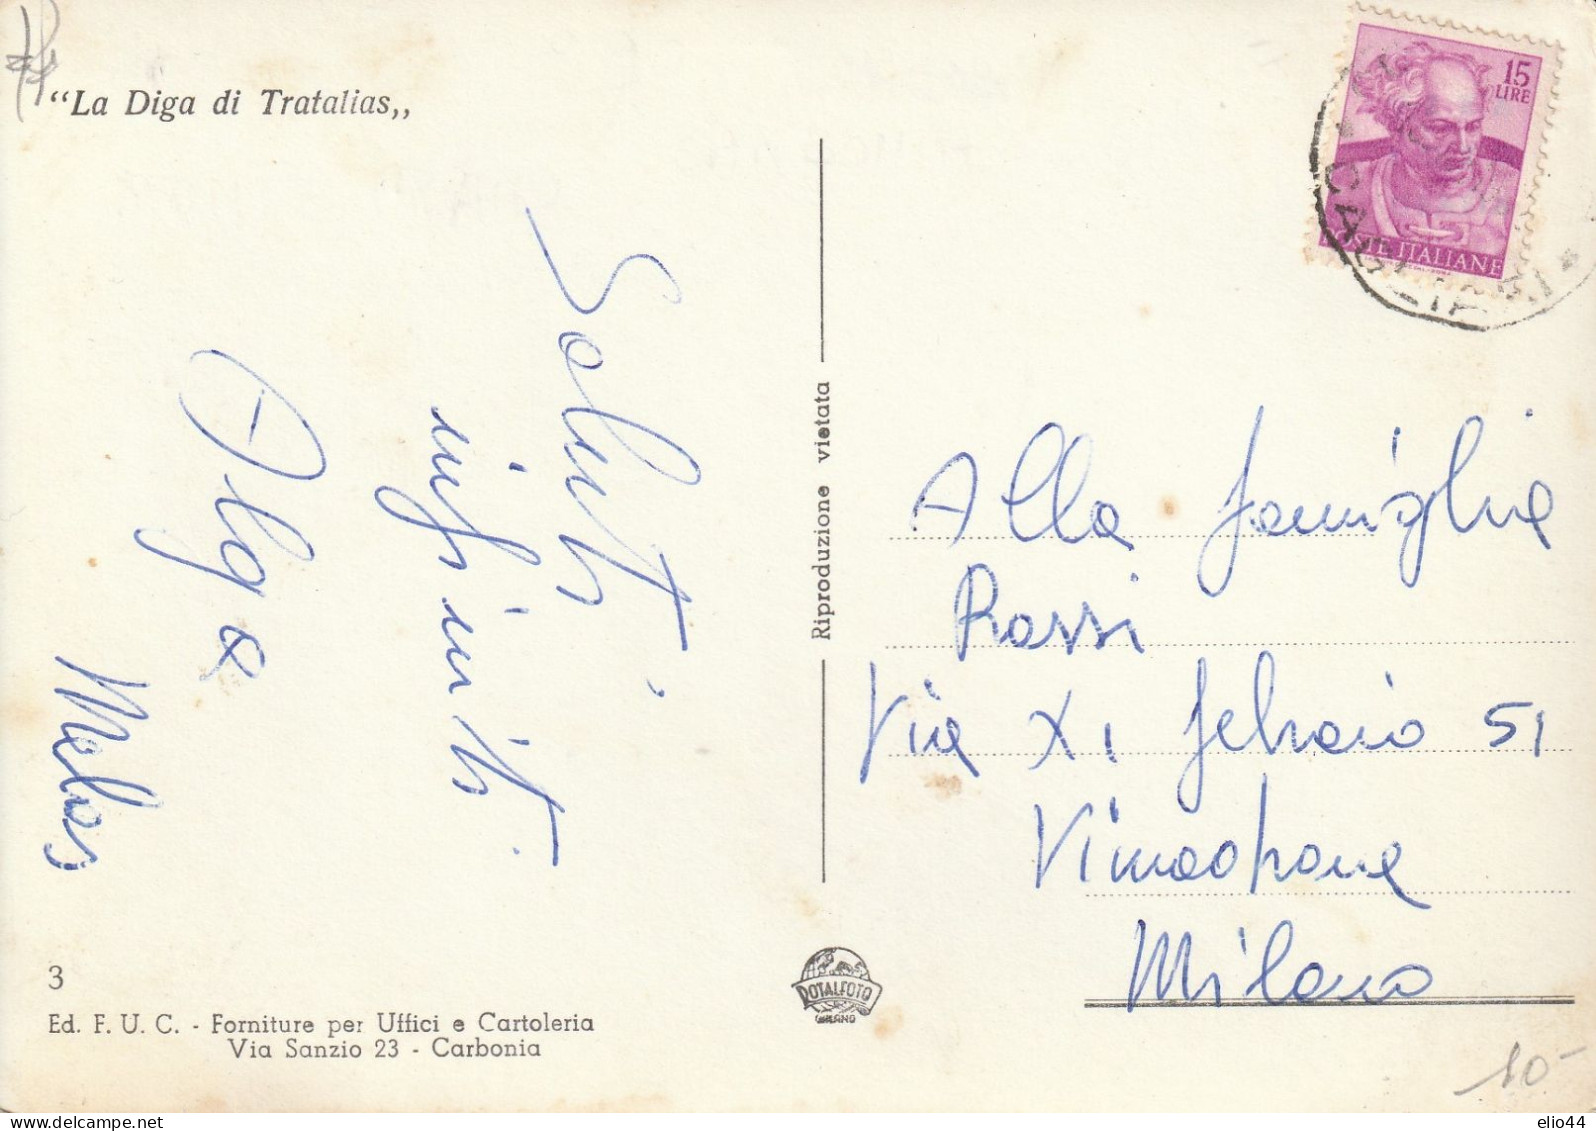 “La Diga di Tratalias„
15
LIRE
POSTE ITALIANE
CAGLIARI
Saluti
infiniti
Alga
Melas
Riproduzione vietata
Alla famiglia
Rossi
Via XI febraio 51
Vimodrone
Milano
3
Ed. F. U. C. - Forniture per Uffici e Cartoleria
Via Sanzio 23 - Carbonia
ROTALFOTO
MILANO
10-
elio44